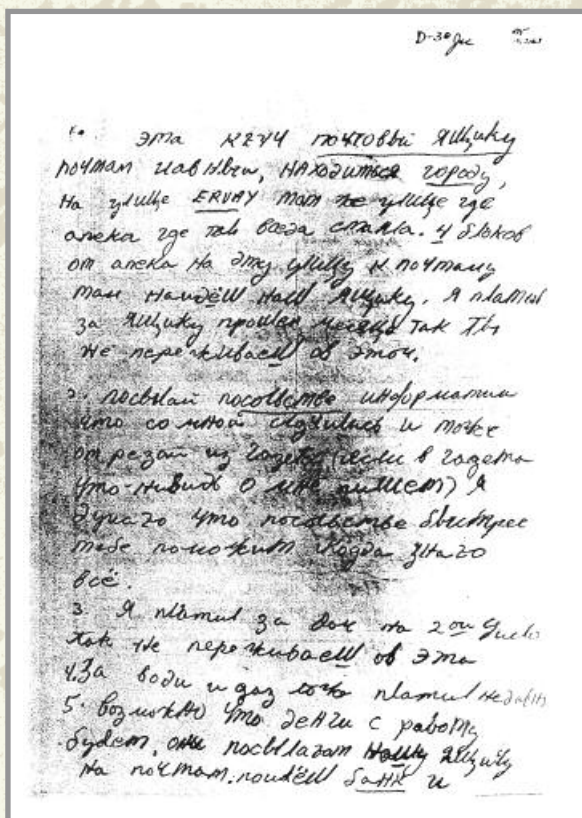 D-30
1. эта ключ почтовый ящику
почтам главнвги, находиться городу,
на улице ERVAY там же улице где
апека где ты всегда стаяла. 4 блоков
от апека на эту улицу к почтаму
там найдёш наш ящику. я платил
за ящику прошлах месяце так ты
не переживаеш об этом.
2. посылай посольстве информатии
что со мной случилась и тоже
отрезай из газеты (если в газета
что-нибидь о мне пишет) я
думаго что посольстве быстрее
тебе поможит когда знаго
всё.
3. я платил за дом на 2ой число
так не переживаеш об эта
4. За води и газ тоже платил недавно
5. возможно что денги с работу
будет, они посылагат нашу ящику
на почтам. поидёш банк и